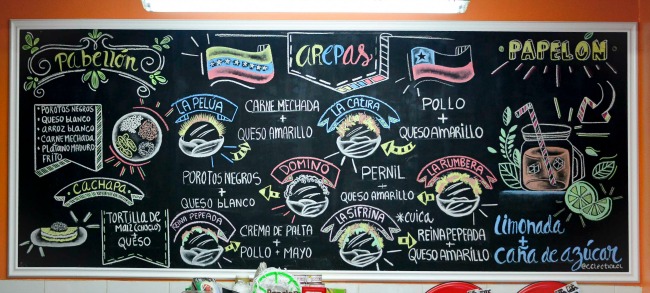 Pabellón
POROTOS NEGROS
QUESO BLANCO
ARROZ BLANCO
CARNE MECHADA
PLÁTANO MADURO
FRITO
CACHAPA
TORTILLA DE
MAÍZ (CHOCLO)
+
QUESO
AREPAS
LA PELÚA
CARNE MECHADA
+
QUESO AMARILLO
LA CATIRA
POLLO
+
QUESO AMARILLO
DOMINÓ
POROTOS NEGROS
+
QUESO BLANCO
PERNIL
+
QUESO AMARILLO
LA RUMBERA
REINA PEPEADA
CREMA DE PALTA
+
POLLO + MAYO
LA SIFRINA
*cuica
REINA PEPEADA
+
QUESO AMARILLO
PAPELÓN
limonada
+
caña de azúcar